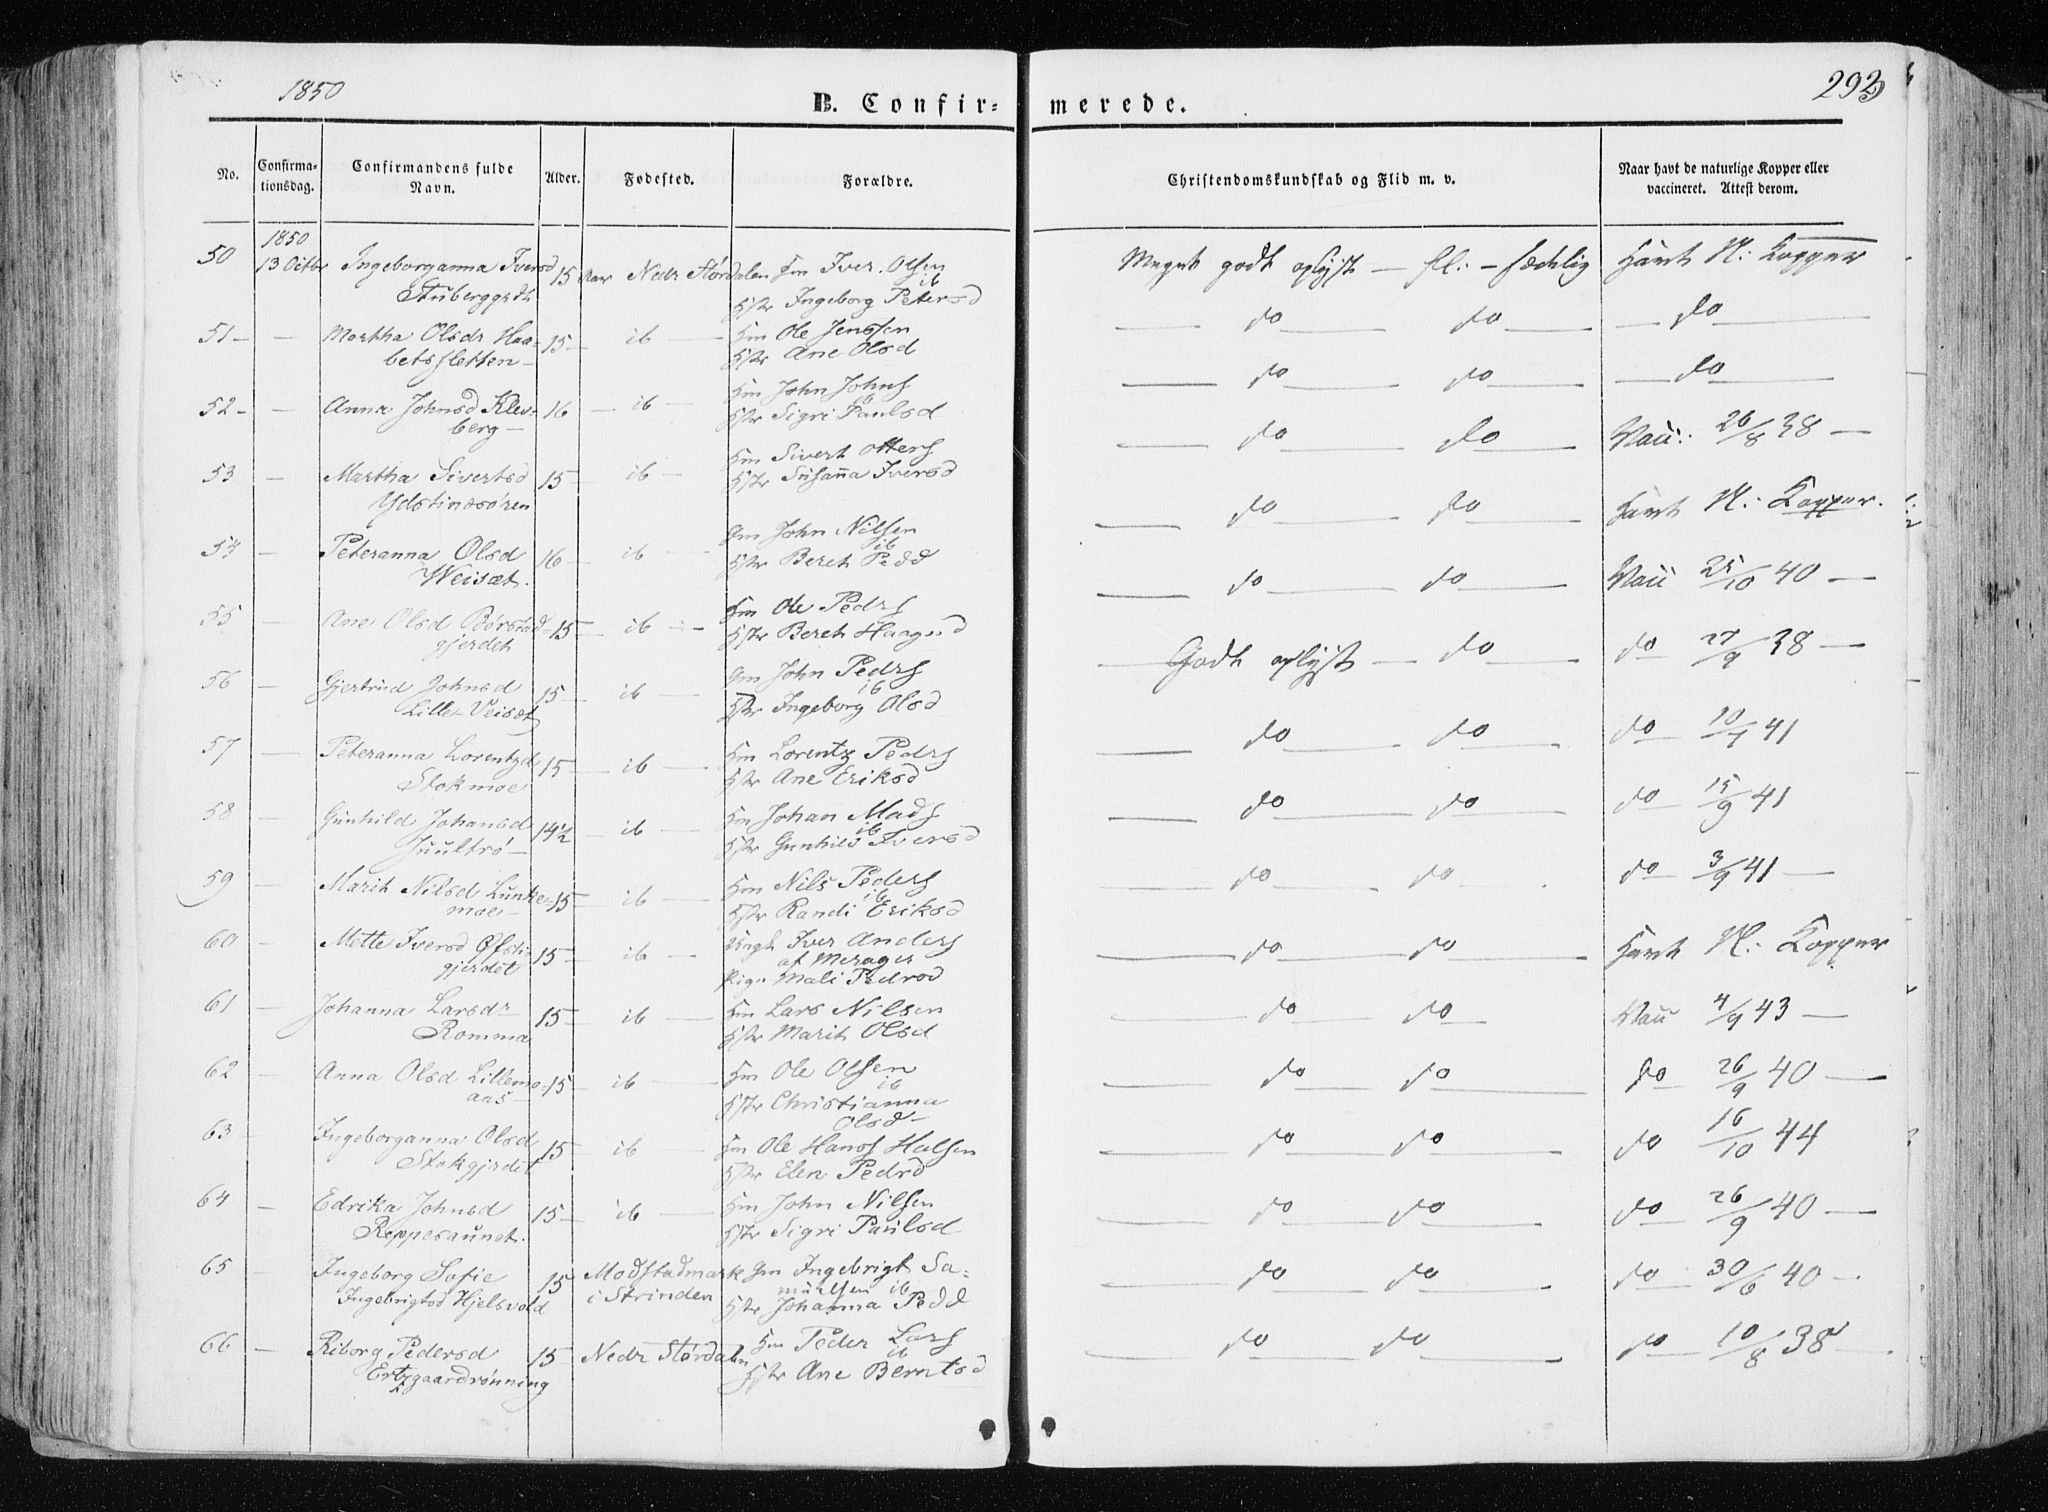 1850
B. Confirmerede.
292
No. Confirmationsdag. Confirmandens fulde Navn. Alder. Fødested. Forældre. Christendomskundskab og Flid m. v. Naar havt de naturlige Kopper eller vaccineret. Attest derom.
1850
50 13 Octbr Ingeborganna Iversd 15 Aar Nedr Størdalen Hm Iver Olsen ib Meget godt oplyst — fl: — sædelig Havt N: Kopper
Stuberggrdt Hstr Ingeborg Petersd
51 — — Martha Olsdr Haa- 15 — ib — Hm Ole Jenssen — do — do — do —
betsfletten — Hstr Ane Olsd
52 — — Anna Johnsd Klev- 16 — ib — Hm John Johns ib — do — do — do —
berg — Hstr Sigri Paulsd
53 — Martha Sivertsd 15 — ib — Hm Sivert Otters — do — do — Vacc: 26/8 38 —
Ydstinesøren Hstr Susanna Iversd
54 — Peteranna Olsd 16 — ib — Gm John Nilsen ib — do — do — Havt N: Kopper.
Weisæt. Hstr Bereth Pedd
55 — Ane Olsd Børstad- 15 — ib — Hm Ole Peders — do — do — Vacc 25/10 40 —
gjerdet Hstr Bereth Haagnsd
56 — Gjertrud Johnsd 15 — ib — Gm John Peders ib — Godt oplyst — do — do 27/9 38 —
Lille-Veisæt Hstr Ingeborg Olsd
57 — Peteranna Lorentzd 15 — ib — Hm Lorentz Peders — do — do — do 10/7 41
Stokmoe Hstr Ane Eriksd
58 — Gunhild Johansd 14½ — ib — Hm Johan Mads ib — do — do — do 15/9 41
Juultrø — Hstr Gunhild Iversd
59 — Marit Nilsd Lunke- 15 — ib — Hm Nils Peders ib — do — do — do 3/9 41 —
moe — Hstr Randi Eriksd
60 — Mette Iversd Øfsti- 15 — ib — Ungk Iver Anders — do — do — Havt N: Kopper
gjerdet af Merager
Pige Mali Pedrsd
61 — Johanna Larsdr 15 — ib — Hm Lars Nilsen — do — do — Vacc 4/9 43 —
Romma Hstr Marit Olsd
62 — Anna Olsd Lillemo- 15 — ib — Hm Ole Olsen ib — do — do — do 26/9 40 —
aas — Hstr Christianna
Olsd —
63 — Ingeborganna Olsd 15 — ib — Hm Ole Hanss Halsen — do — do — do 16/10 44
Stokgjrdet Hstr Elen Pedrd
64 — Edrika Johnsd 15 — ib — Hm John Nilsen — do — do — do 26/9 40 —
Reppesaunet. Hstr Sigri Paulsd
65 — Ingeborg Sofie 15 Modstadmark Gm Ingebrigt Sa- — do — do — do 30/6 40 —
Ingebrigtsd Hjelsvold i Strinden muelsen ib
Hstr Johanna Pedd
66 — Riborg Pedersd 15 Nedr Størdalen Hm Peder Lars ib — do — do — do 10/8 38 —
Ertzgaardrønning Hstr Ane Berntsd